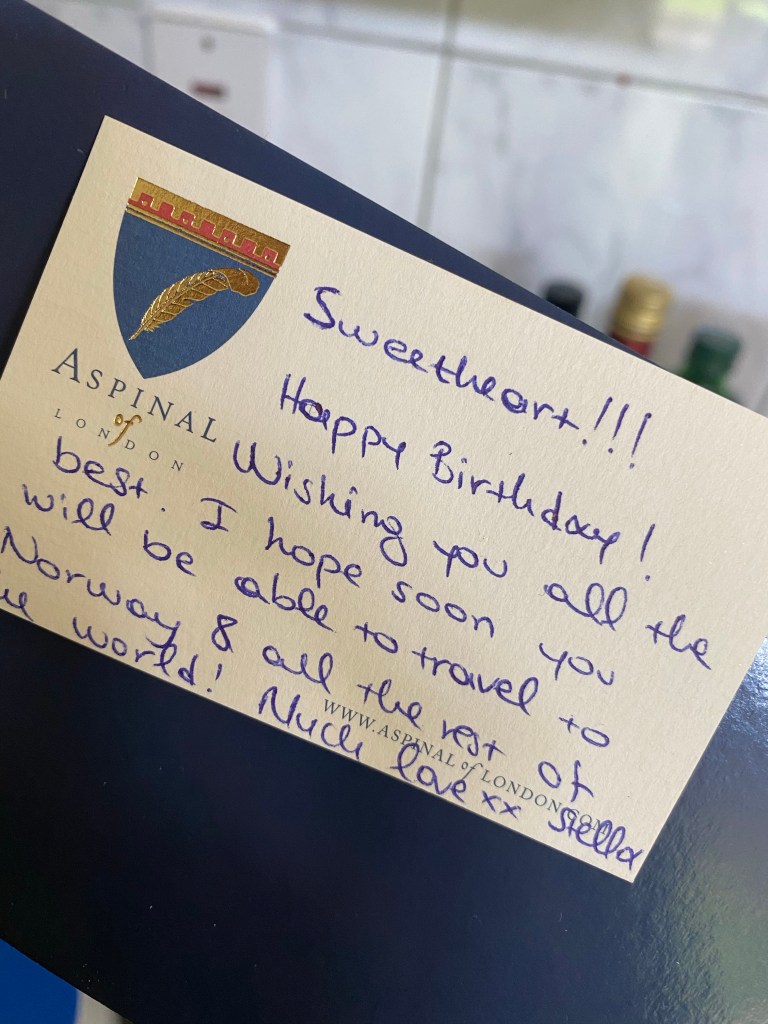 ASPINAL
of
LONDON
Sweetheart!!!
Happy Birthday!
Wishing you all the
best. I hope soon you
will be able to travel to
Norway & all the rest of
world! Much love xx Stella
WWW.ASPINALofLONDON.COM